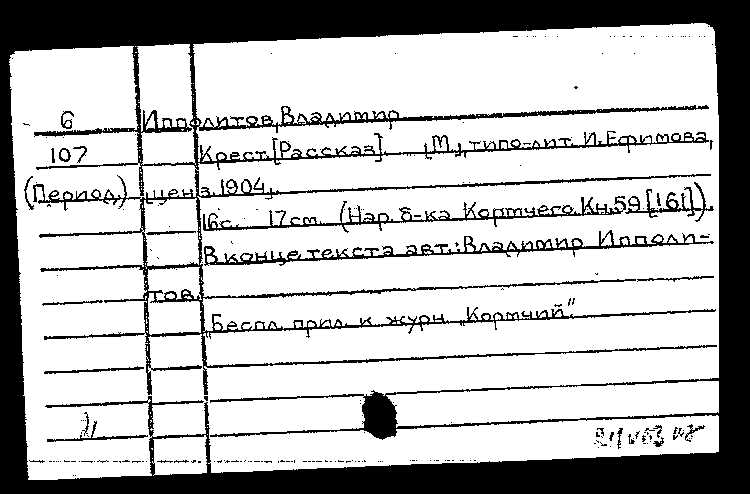 6 Ипполитов, Владимир
107 Крест. [Рассказ]. [М.], типо-лит. И. Ефимова,
(Период.) ценз. 1904.
16 с. 17 см. (Нар. б-ка Кормчего. Кн. 59 [161]).
В конце текста авт.: Владимир Ипполи-
тов.
Беспл. прил. к журн. „Кормчий".